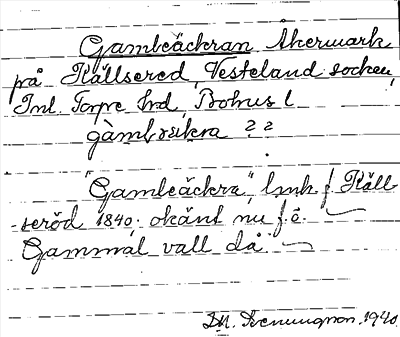 Gambeäckran Åkermark
på Källsered, Vesteland socken,
Inl. Torpe hrd, Bohus l
gàmbräkra ? ?
"Gambeäckra" lmh f Käll
-seröd 1840. okänt nu f.ö.
Gammal vall då
D.N. Svenungson. 1940.